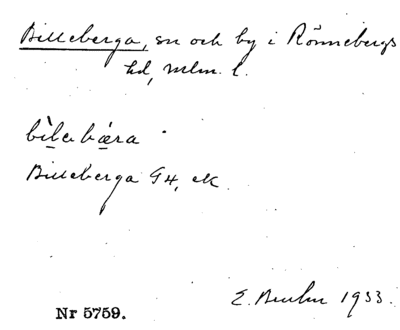 Billeberga, sn och by i Rönnebergs
hd, Mlm. l.
bìlabæ̀ra
Billeberga G4, ek.
E. 1933.
Nr 5759.